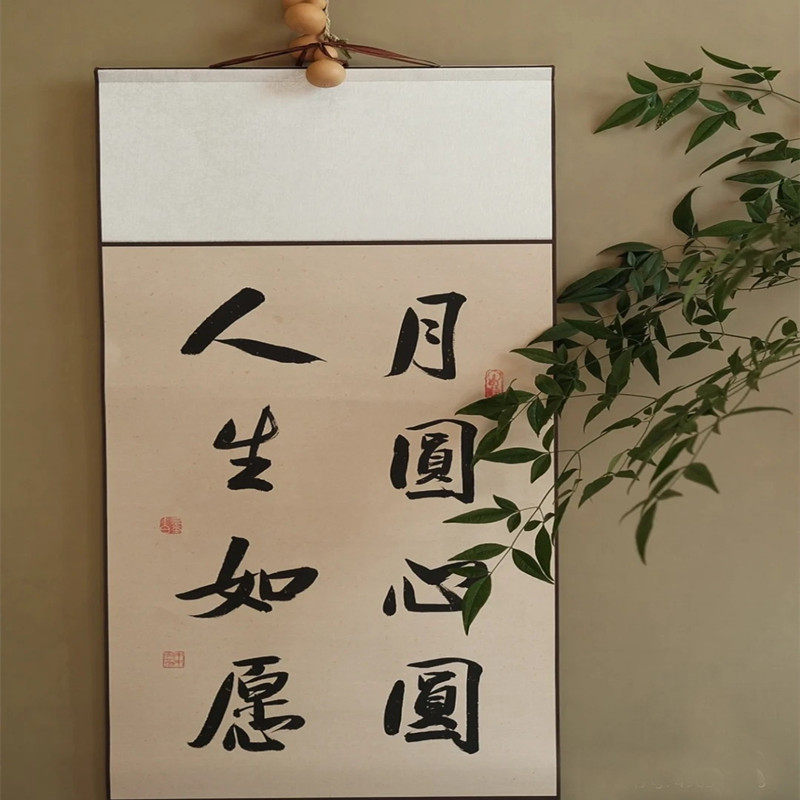 月圓心圓
人生如愿